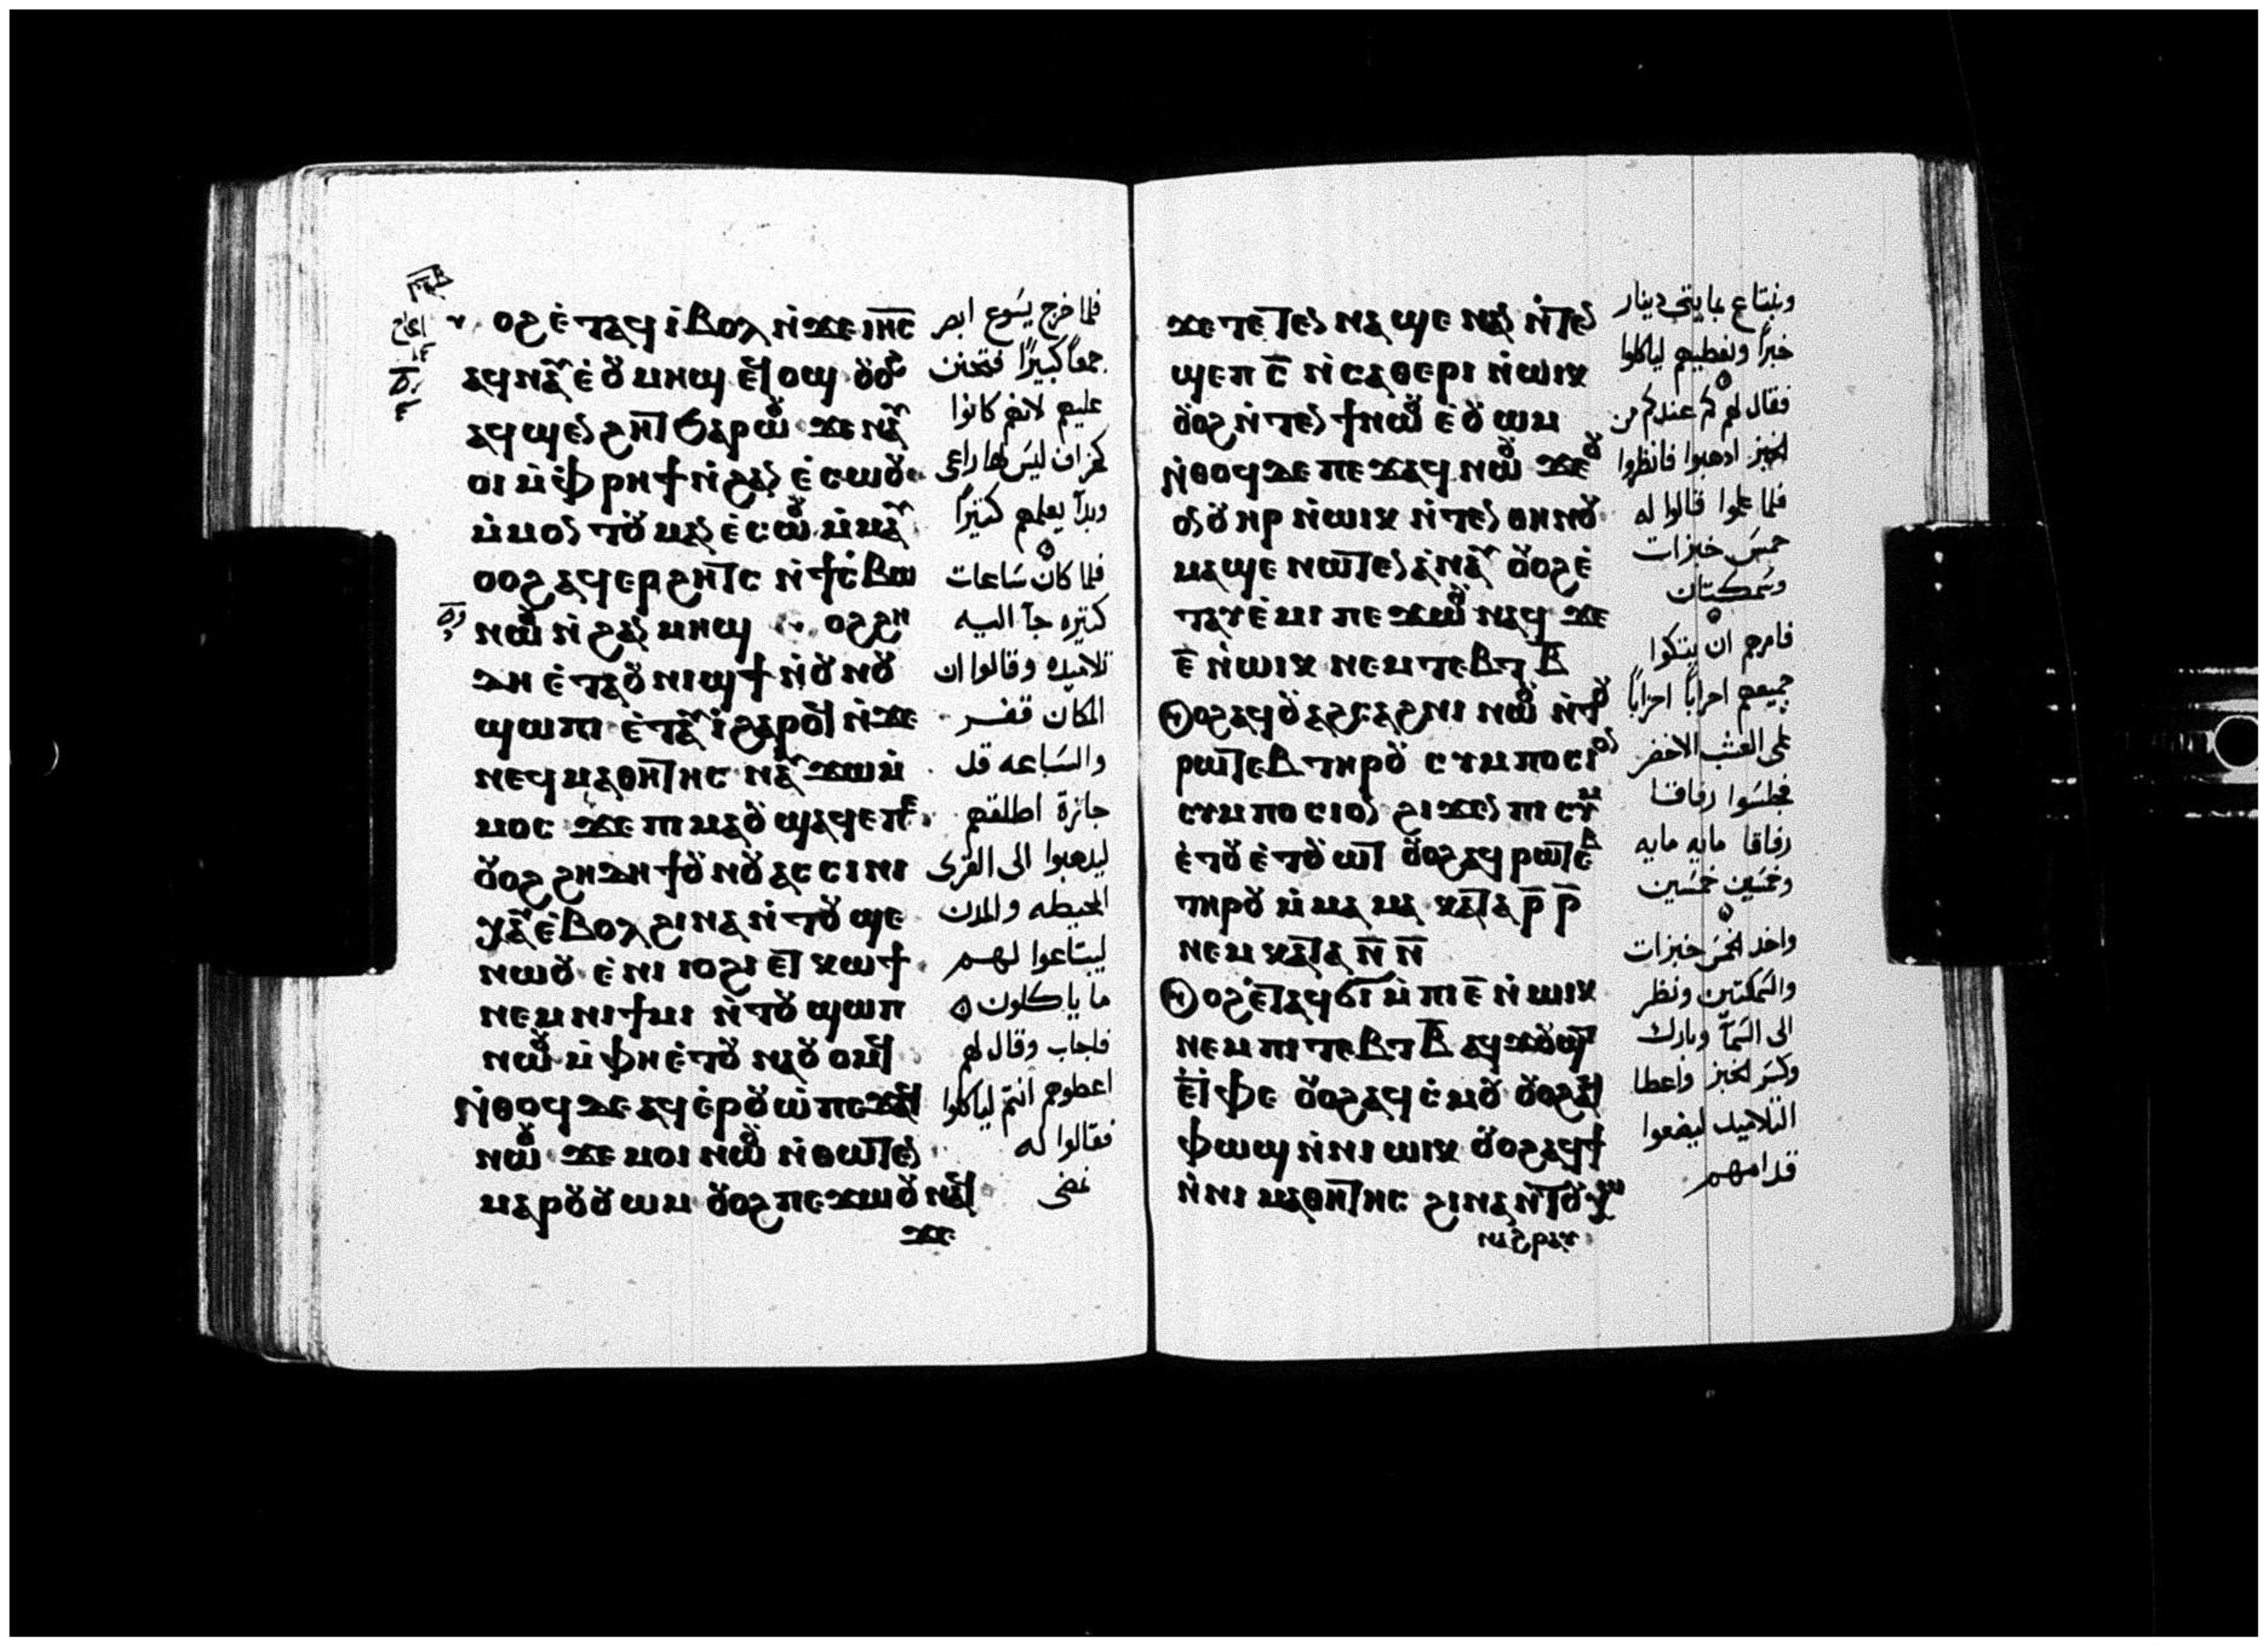 ⲟϩ ⲉ̇ⲧⲁϥⲓ̇ⲃⲟⲗ ⲛ̇ϫⲉ ⲓⲏ̅ⲥ̅
ⲁϥⲛⲁⲩ ⲉ̇ⲟⲩⲙⲏϣ ⲉϥⲟϣ ⲟⲩⲟϩ
ⲁϥϣⲉⲛϩⲏⲧ ϧⲁⲣⲱⲟⲩ ϫⲉ ⲛⲁⲩ
ⲟⲓ ⲙ̇ⲫⲣⲏϯ ⲛ̇ϩⲁⲛ ⲉ̇ⲥⲱⲟⲩ
ⲙ̇ⲙⲟⲛ ⲧⲟⲩ ⲙⲁⲛ ⲉ̇ⲥⲱⲟⲩ ⲙ̇ⲙⲁⲩ
ⲟⲟϩ ⲁϥⲉⲣϩⲏⲧⲥ ⲛ̇ϯⲥ̇ⲃⲱ
ⲛⲱⲟⲩ ⲛ̇ϩⲁⲛ ⲙⲏϣ ⲟϩϩⲏ
ⲇⲏ ⲉ̇ⲧⲁⲟⲩⲛⲓϣϯ ⲛ̇ⲟⲩⲛⲟⲩ
ϣⲱⲡⲓ ⲉ̇ⲧⲁⲩⲓ̇ ϩⲁⲣⲟϥ ⲛ̇ϫⲉ
ⲛⲉϥⲙⲁⲑⲏⲧⲏⲥ ⲛⲁⲩϫⲱ ⲙ̇
ⲙⲟⲥ ϫⲉ ⲡⲓⲙⲁ ⲟⲩϣⲁϥⲉ ⲡⲉ
ⲟⲩⲟϩ ϩⲏⲇⲏ ϯⲟⲩⲛⲟⲩ ⲁⲥⲥⲓⲛⲓ
ⲭⲁⲩ ⲉ̇ⲃⲟⲗ ϩⲓⲛⲁ ⲛ̇ⲧⲟⲩϣⲉ
ⲛⲱⲟⲩ ⲉ̇ⲛⲓ ⲓⲟϩⲓ ⲉⲧⲕⲱϯ
ⲛⲉⲙ ⲛⲓϯⲙⲓ ⲛ̇ⲧⲟⲩϣⲱⲡ
ⲛⲱⲟⲩ ⲙ̇ⲫⲏ ⲉ̇ⲧⲟⲩⲛⲁⲟⲩⲟⲙϥ
ⲛ̇ⲑⲟϥ ⲇⲉ ⲁϥⲉ̇ⲣⲟⲩⲱ̇ ⲡⲉϫⲁϥ
ⲛⲱⲟⲩ ϫⲉ ⲙⲟⲓ ⲛⲱⲟⲩ ⲛ̇ⲑⲱⲧⲉⲛ
ⲙⲁⲣⲟⲩⲟⲩⲱⲙ ⲟⲩⲟϩ ⲡⲉϫⲱⲟⲩ ⲛⲁϥ
ϫⲉ
فلما خرج يسوع ابصر
جمعاً كبيرًا فتحنن
عليهم لانهم كانوا
كخراف ليس لها راعى
وبدأ يعلمهم كثيرًا
فلما كان ساعات
كثيره جآ اليه
تلاميده وقالوا ان
المكان قفر
والساعه قد
جازة اطلقهم
ليدهبوا الى القرى
المحيطه والمدن
ليبتاعوا لهم
ما ياكلون
فاجاب وقال لهم
اعطوهم انتم لياكلوا
فقالوا له
نمضى
ϫⲉ ⲛ̇ⲧⲉⲛ ⲛⲁϣⲉ ⲛⲁⲛ ⲛ̇ⲧⲉⲛ
ϣⲉⲡ ⲥ̅ ⲛ̇ⲥⲁⲑⲉⲣⲓ ⲛ̇ⲱⲓⲕ
ⲟⲩⲟϩ ⲛ̇ⲧⲉⲛ ϯⲛⲱⲟⲩ ⲉ̇ⲟⲩⲱⲙ
ⲛ̇ⲑⲟϥ ⲇⲉ ⲡⲉϫⲁϥ ⲛⲱⲟⲩ ϫⲉ ⲟⲩ
ⲟⲛ ⲟⲩⲏⲣ ⲛ̇ⲱⲓⲕ ⲛ̇ⲧⲉⲛ ⲑⲏⲛⲟⲩ
ⲙⲁϣⲉ ⲛⲱⲧⲉⲛ ⲁ̇ⲛⲁⲩ ⲟⲩⲟϩ ⲉ̇
ⲧⲁⲩⲉ̇ⲙⲓ ⲡⲉϫⲱⲟⲩ ⲛⲁϥ ϫⲉ
ⲉ̅ ⲛ̇ⲱⲓⲕ ⲛⲉⲙ ⲧⲉⲃⲧ ⲃ̅
ⲟϩ ⲁϥⲟⲩⲁϩⲥⲁϩⲛⲓ ⲛⲱⲟⲩ ⲛ̇ⲧⲟⲩ
ⲣⲱⲧⲉⲃ ⲧⲏⲣⲟⲩ ⲥⲩⲙⲡⲟⲥⲓⲟⲛ
ⲥⲩⲙⲡⲟⲥⲓⲟⲛ ϩⲓϫⲉⲛ ⲡⲓⲥⲓⲙ
ⲉ̇ⲧⲟⲩⲉ̇ⲧⲟⲩⲱⲧ ⲟⲩⲟϩ ⲁϥⲣⲱⲧⲉⲃ
ⲧⲏⲣⲟⲩ ⲙ̇ⲙⲁ ⲙⲁ ⲕⲁⲧⲁ ⲣ̅ ⲣ̅
ⲛⲉⲙ ⲕⲁⲧⲁ ⲛ̅ ⲛ̅
ⲟϩ ⲉ̇ⲧⲁϥϭⲓ ⲙ̇ⲡⲓ ⲉ̅ ⲛ̇ⲱⲓⲕ
ⲛⲉⲙ ⲡⲓⲧⲉⲃⲧ ⲃ̅ ⲁϥϫⲟⲩϣⲧ
ⲉ̇ⲧⲫⲉ ⲟⲩⲟϩ ⲁϥⲥ̇ⲙⲟⲩ ⲟⲩⲟϩ ⲁϥ
ⲫⲱϣ ⲛ̇ⲛⲓⲱⲓⲕ ⲟⲩⲟϩ ⲁϥϯ
ⲛ̇ⲛⲓ ⲙⲁⲑⲏⲧⲏⲥ ϩⲓⲛⲁ ⲛ̇ⲧⲟⲩⲭⲱ
وبنتاع بمايتى دينار
خبزاً ونعطيهم لياكلوا
فقال لهم كم عندكم من
الخبز ادهبوا فانظروا
فلما علموا قالوا له
خمس خبزات
وسمكتان
فامرهم ان يتكوا
جميعهم احزاباً احزاباً
على العشب الاخضر
فجلسوا رفاقا
رفاقا مايه مايه
وخمسين خمسين
واخد الخمس خبزات
والسمكتين ونظر
الى السمآ وبارك
وكسر الخبز واعطا
التلاميد ليضعوا
قدامهم